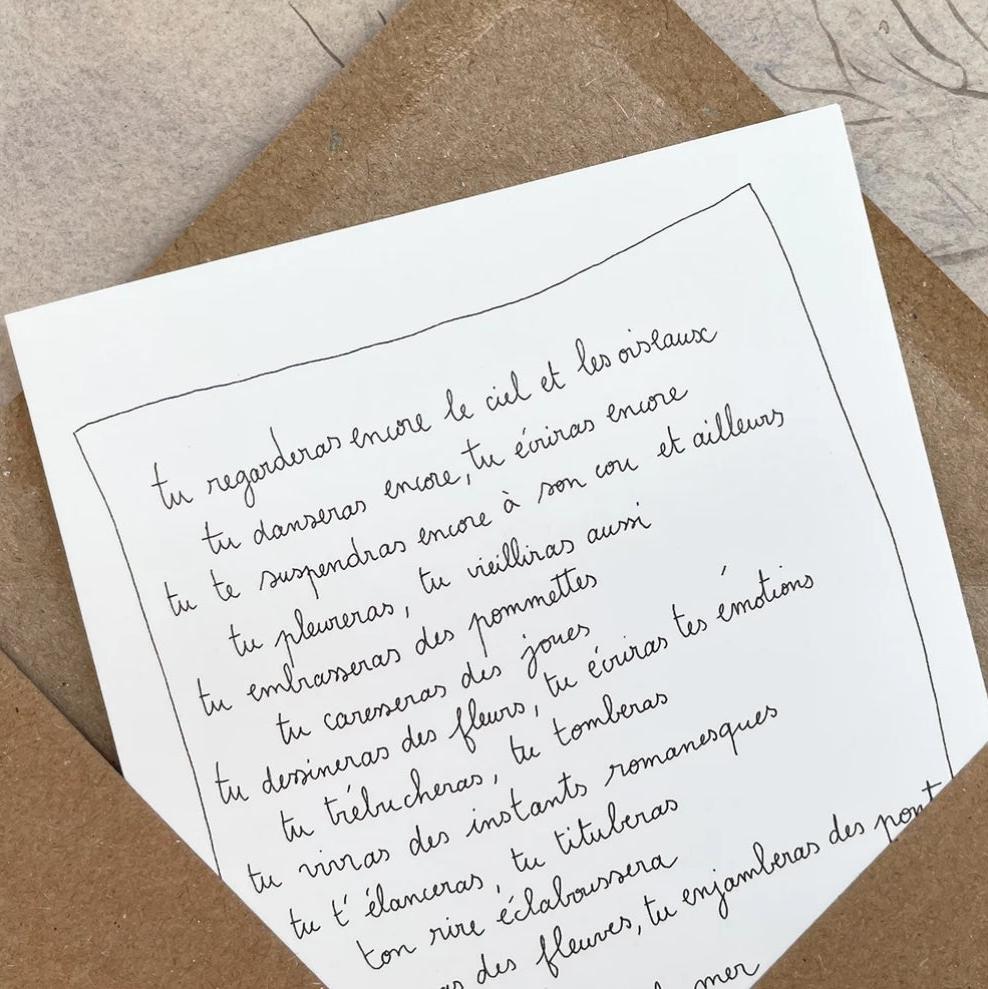 tu regarderas encore le ciel et les oiseaux
tu danseras encore, tu écriras encore
tu te suspendras encore à son cou et ailleurs
tu pleureras, tu vieilliras aussi
tu embrasseras des pommettes
tu caresseras des joues
tu dessineras des fleurs, tu écriras tes émotions
tu trébucheras, tu tomberas
tu vivras des instants romanesques
tu t'élanceras, tu tituberas
ton rire éclaboussera
des fleuves, tu enjamberas des pont
mer